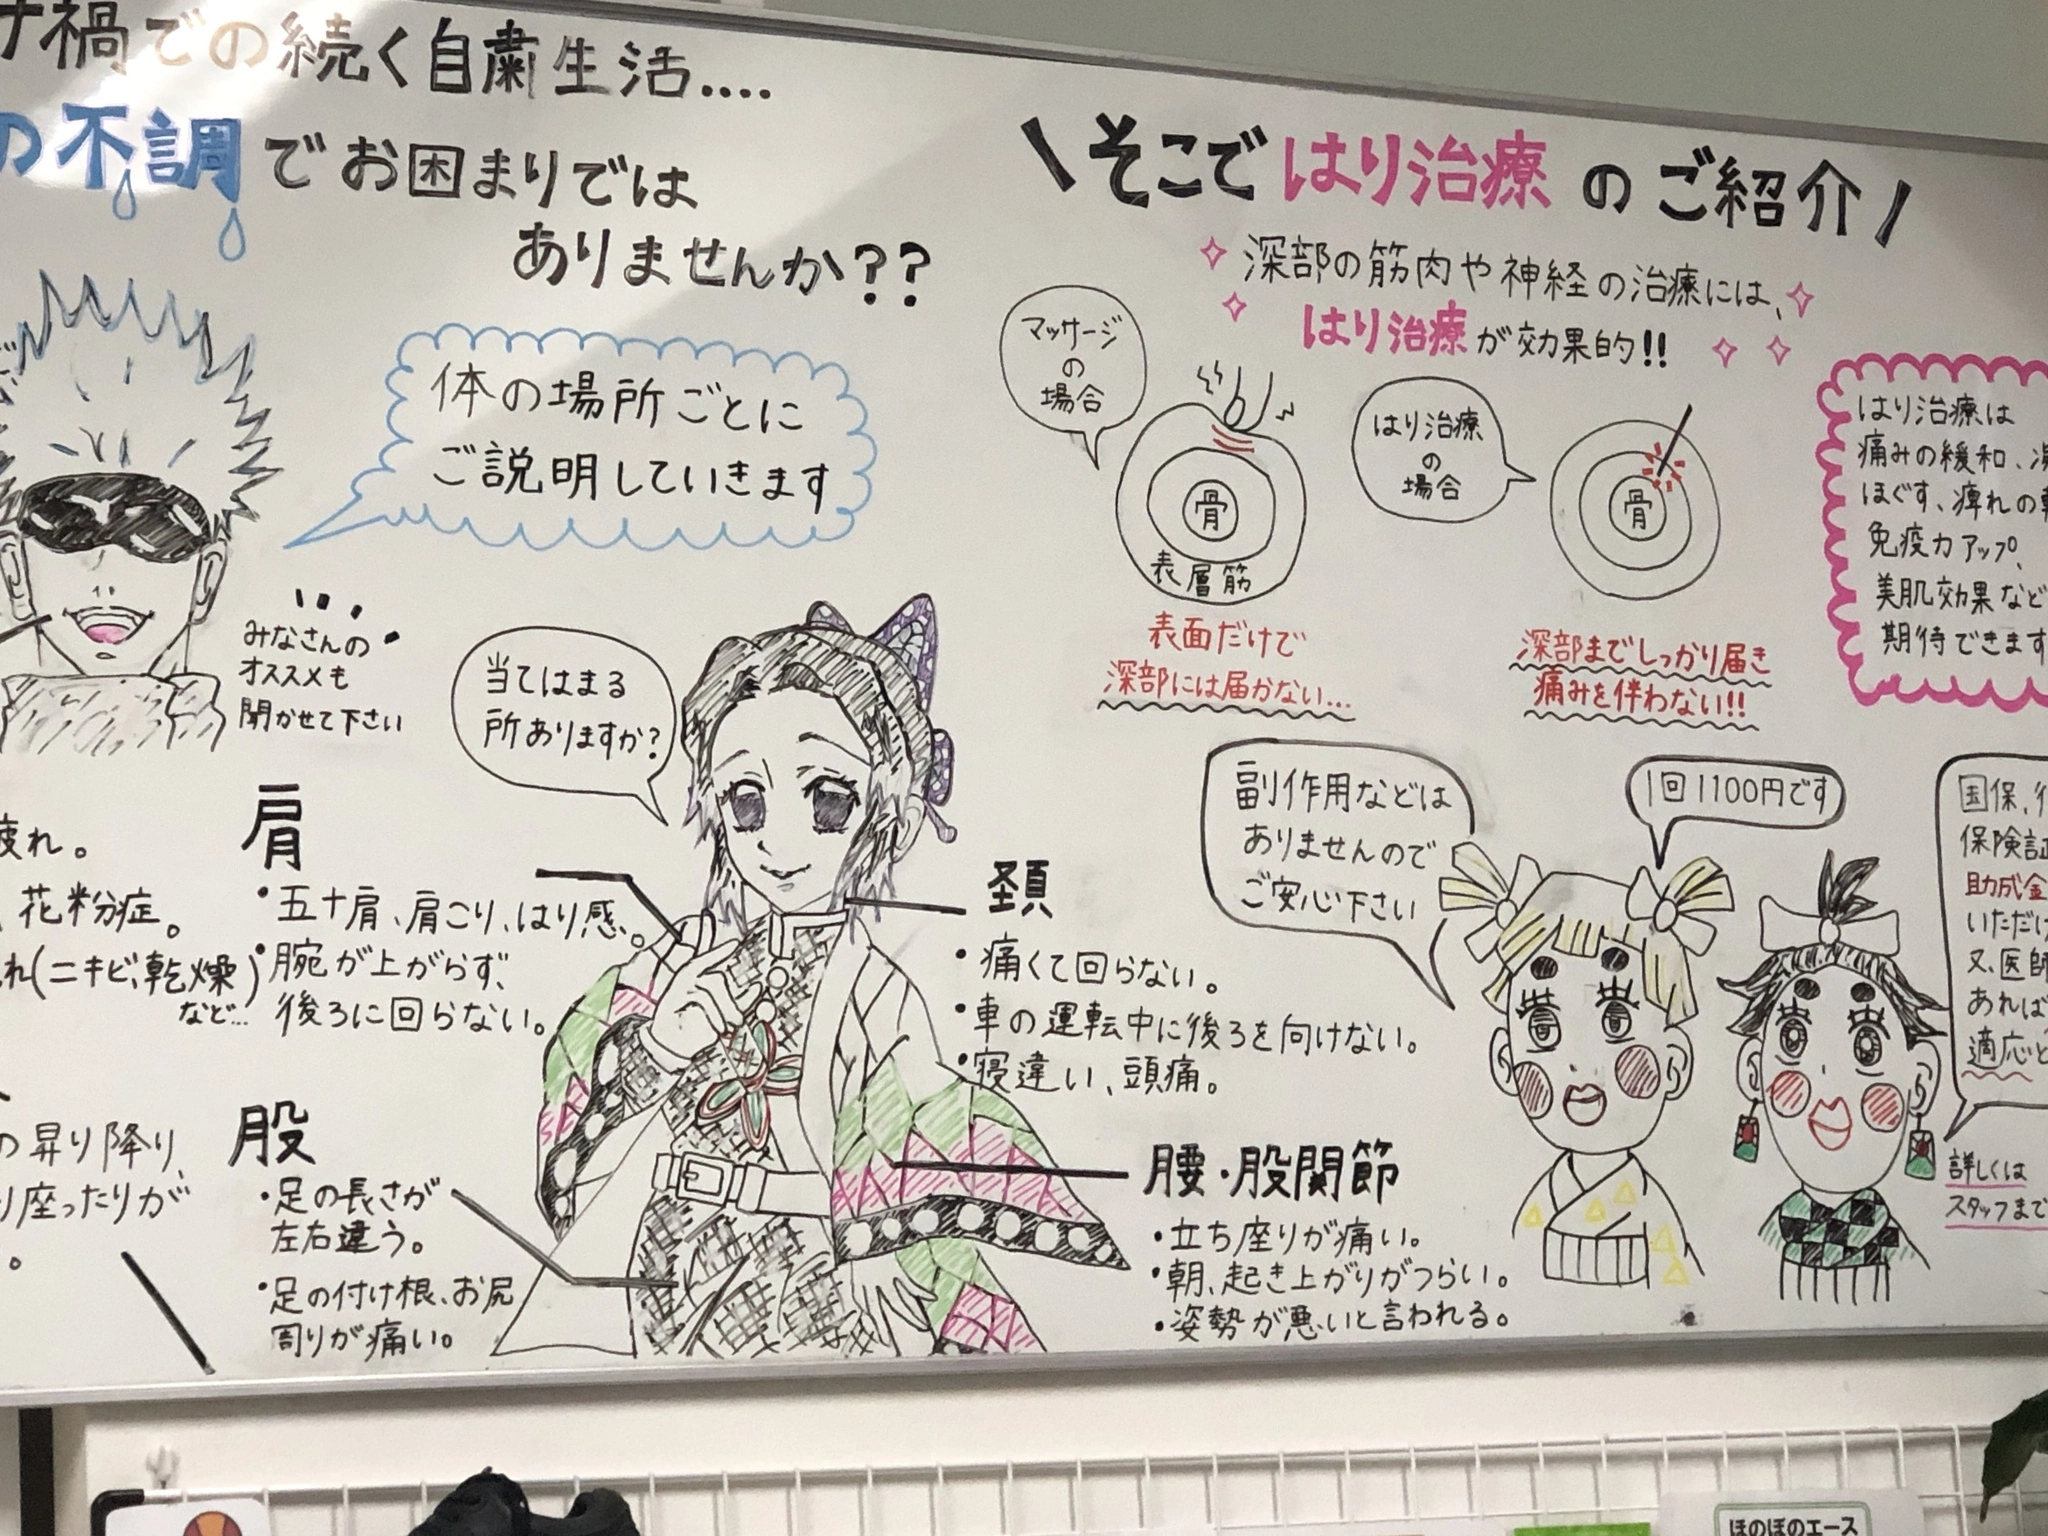 ナ禍での続く自粛生活....
の不調でお困りでは
ありませんか??
体の場所ごとに
ご説明していきます
みなさんの
オススメも
聞かせて下さい
当てはまる
所ありますか?
疲れ。
花粉症。
れ(ニキビ、乾燥)
など…
の昇り降り、
り座ったりが
。
肩
・五十肩、肩こり、はり感。
・腕が上がらず、
後ろに回らない。
股
・足の長さが
左右違う。
・足の付け根、お尻
周りが痛い。
頚
・痛くて回らない。
・車の運転中に後ろを向けない。
・寝違い、頭痛。
腰・股関節
・立ち座りが痛い。
・朝、起き上がりがつらい。
・姿勢が悪いと言われる。
\そこではり治療のご紹介/
深部の筋肉や神経の治療には、
はり治療が効果的!!
マッサージ
の
場合
骨
表層筋
表面だけで
深部には届かない…
はり治療
の
場合
骨
深部までしっかり届き
痛みを伴わない!!
はり治療は
痛みの緩和、
ほぐす、痺れの
免疫力アップ、
美肌効果など
期待できます
副作用などは
ありませんので
ご安心下さい
1回1100円です
国保、
保険証
助成金
いただけ
又、医師
あれば
適応と
詳しくは
スタッフまで
ほのぼのエース